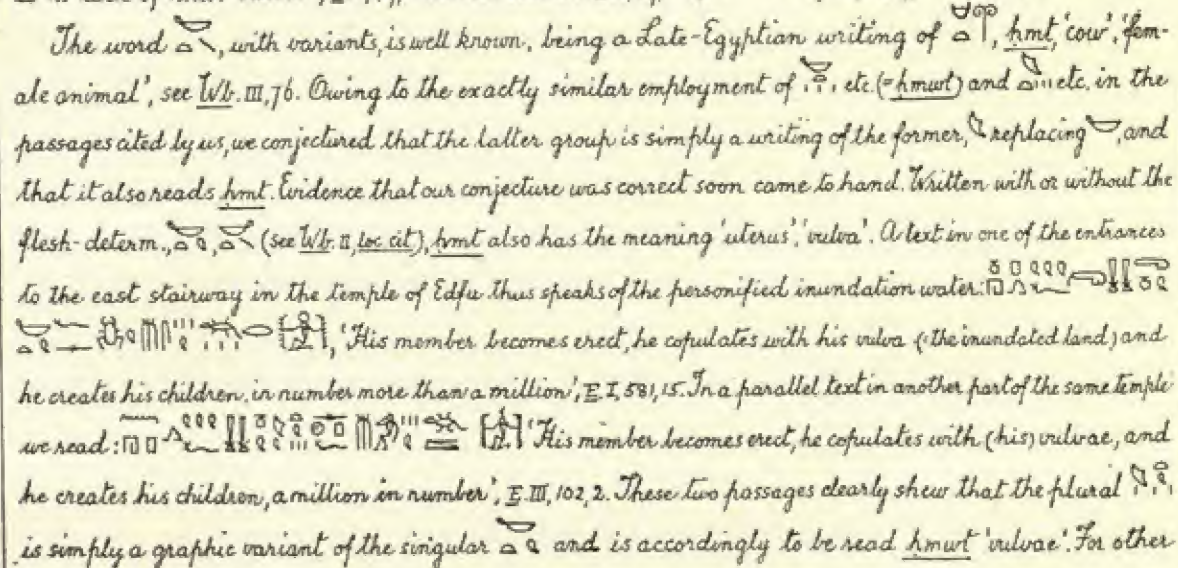 The word , with variants, is well known, being a Late-Egyptian writing of , ḥmt, 'cow', 'fem-
ale animal', see Wb. III, 76. Owing to the exactly similar employment of etc. (= ḥmwt) and etc. in the
passages cited by us, we conjectured that the latter group is simply a writing of the former, replacing , and
that it also reads ḥmt. Evidence that our conjecture was correct soon came to hand. Written with or without the
flesh-determ., , (see Wb. II, loc. cit.), ḥmt also has the meaning 'uterus', 'vulva'. A text in one of the entrances
to the east stairway in the temple of Edfu thus speaks of the personified inundation water:
, 'His member becomes erect, he copulates with his vulva (: the inundated land) and
he creates his children, in number more than a million', E. I, 581, 15. In a parallel text in another part of the same temple
we read: 'His member becomes erect, he copulates with (his) vulvae, and
he creates his children, a million in number', E. III, 102, 2. These two passages clearly shew that the plural
is simply a graphic variant of the singular and is accordingly to be read ḥmwt 'vulvae'. For other